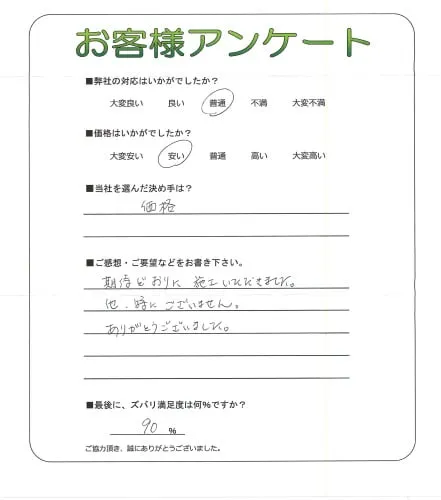 お客様アンケート
■弊社の対応はいかがでしたか？
大変良い 良い 普通 不満 大変不満
■価格はいかがでしたか？
大変安い 安い 普通 高い 大変高い
■当社を選んだ決め手は？
価格
■ご感想・ご要望などをお書き下さい。
期待どおりに施工いただけました。
他、特にございません。
ありがとうございました。
■最後に、ズバリ満足度は何%ですか？
90 %
ご協力頂き、誠にありがとうございました。